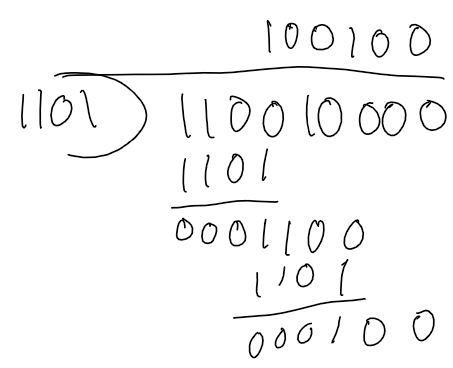 100100
1101 ) 110010000
1101
0001100
1101
000100